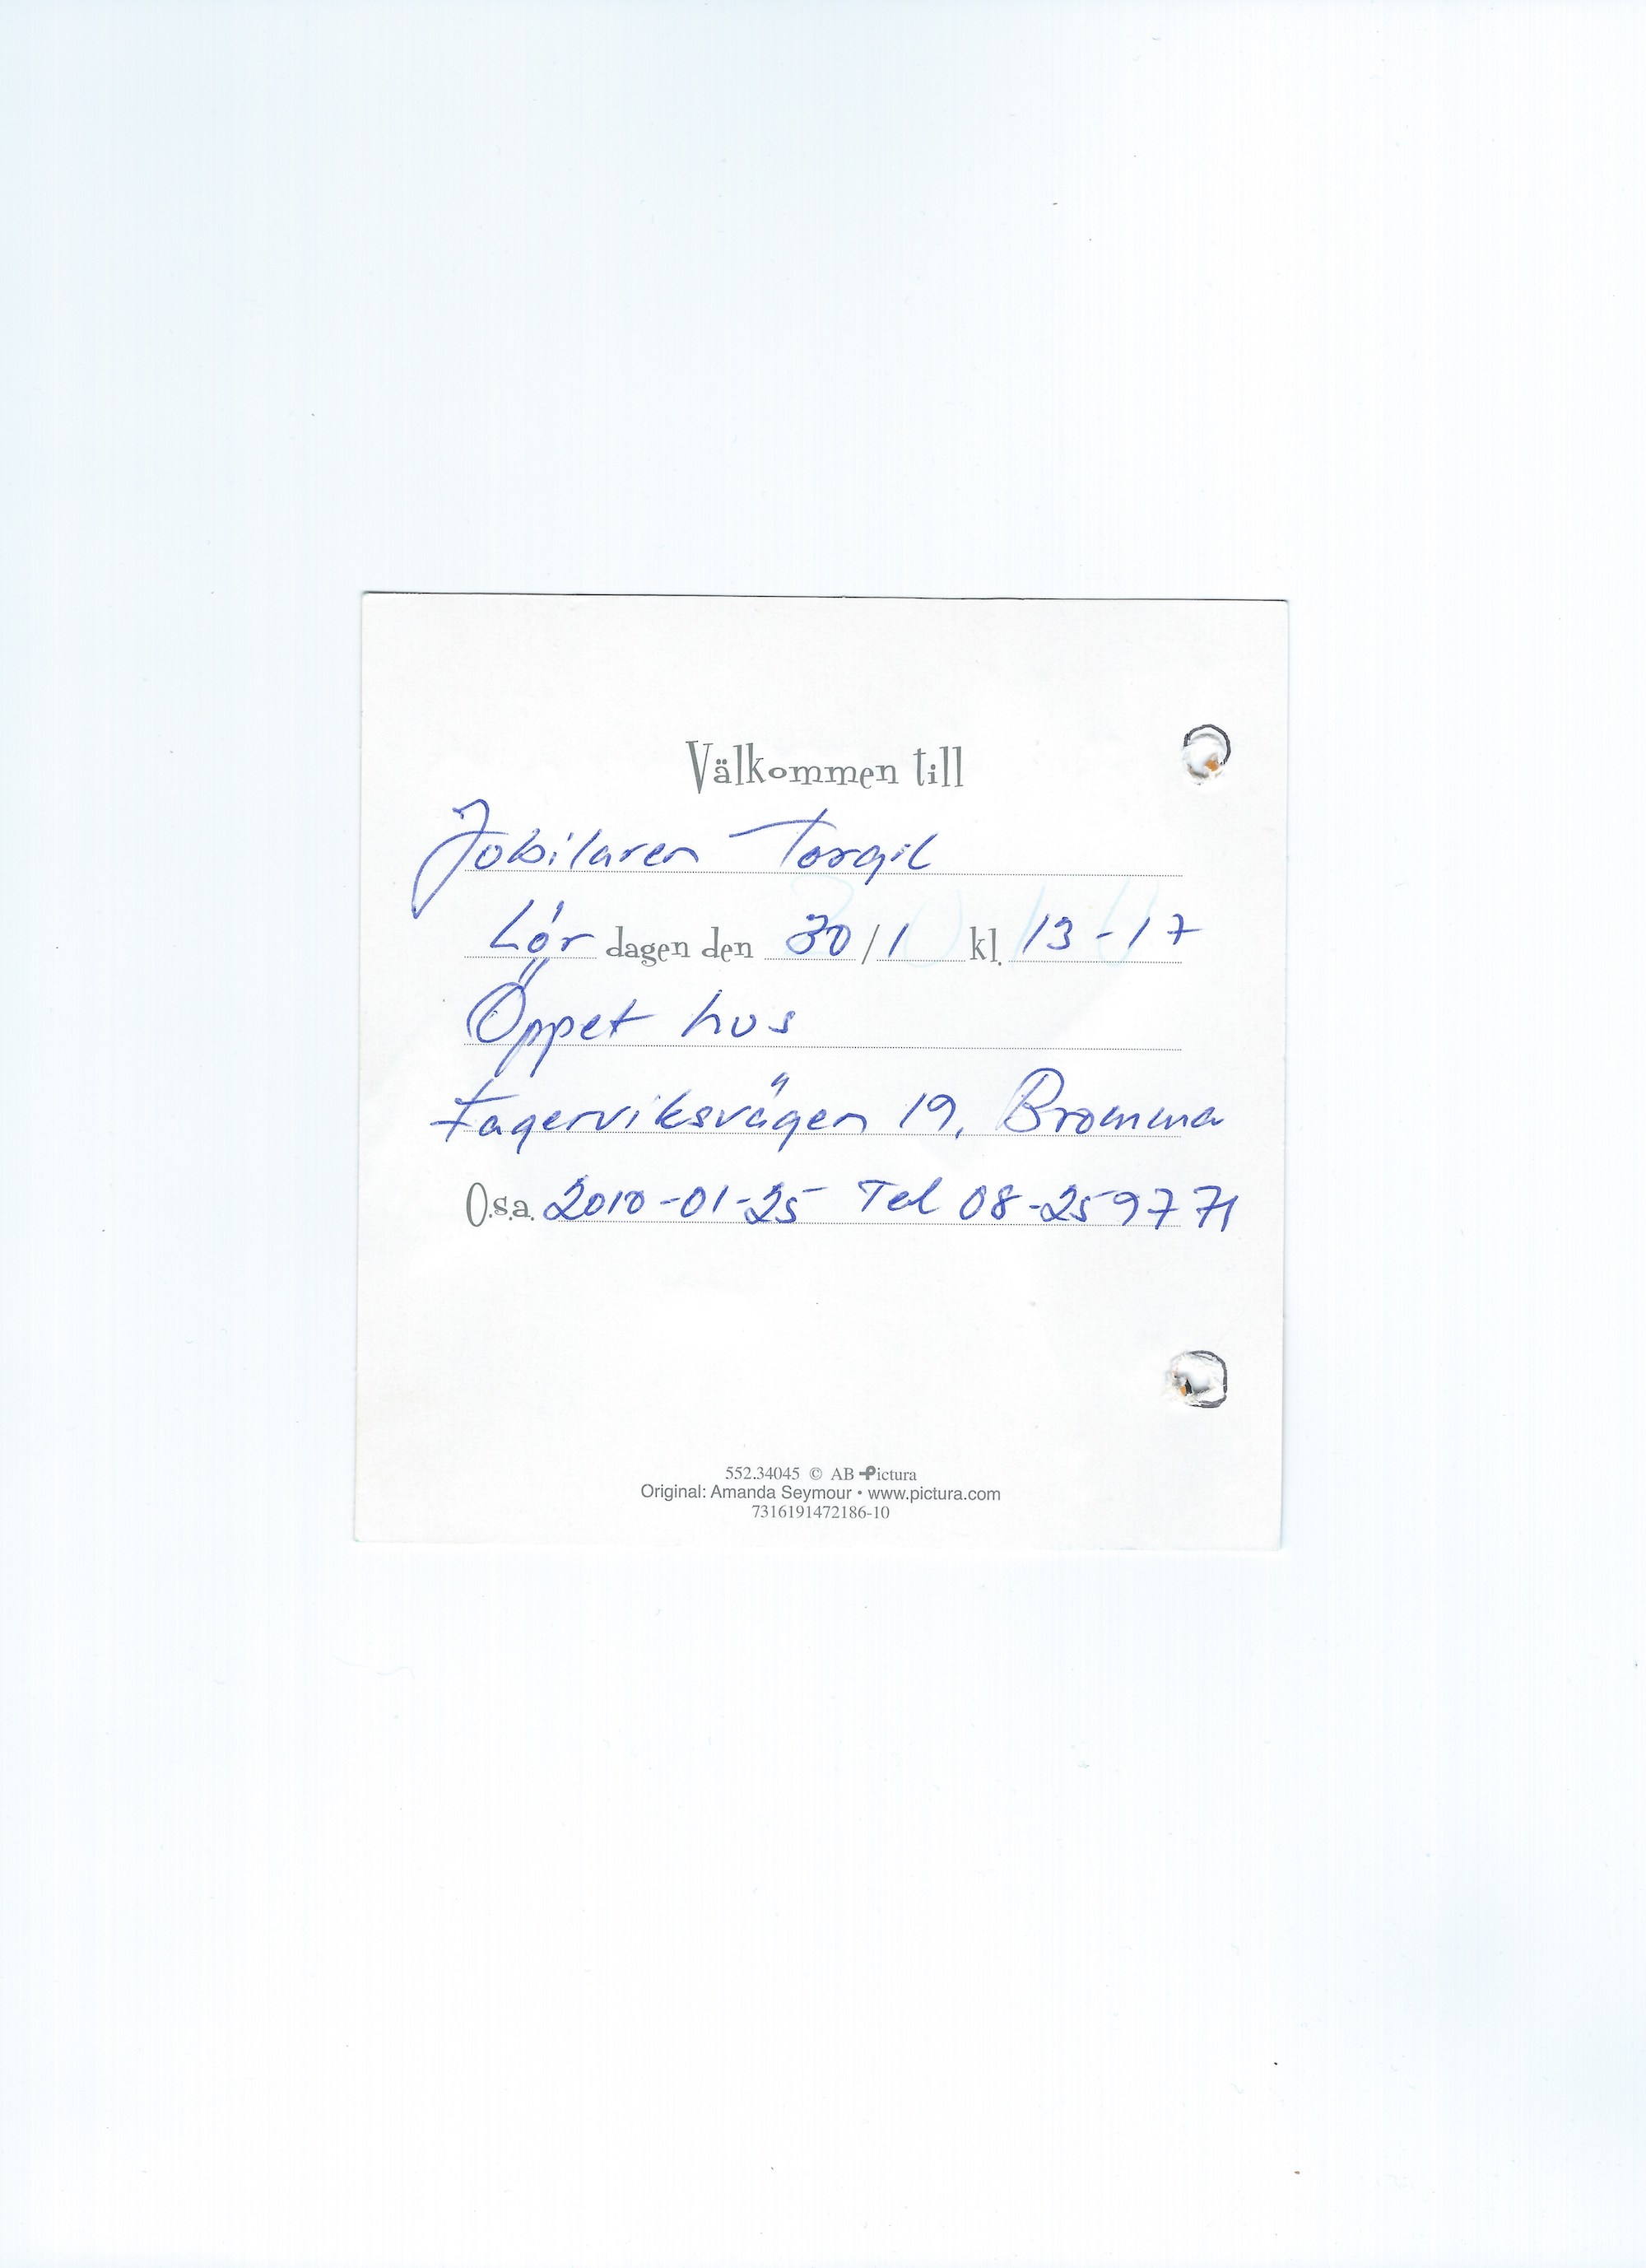 Välkommen till
Jubilaren Torgil
Lördagen den 30/1 kl. 13-17
Öppet hus
Fagerviksvägen 19, Bromma
O.s.a. 2010-01-25 Tel 08-259771
552.34045 © AB Pictura
Original: Amanda Seymour • www.pictura.com
7316191472186-10